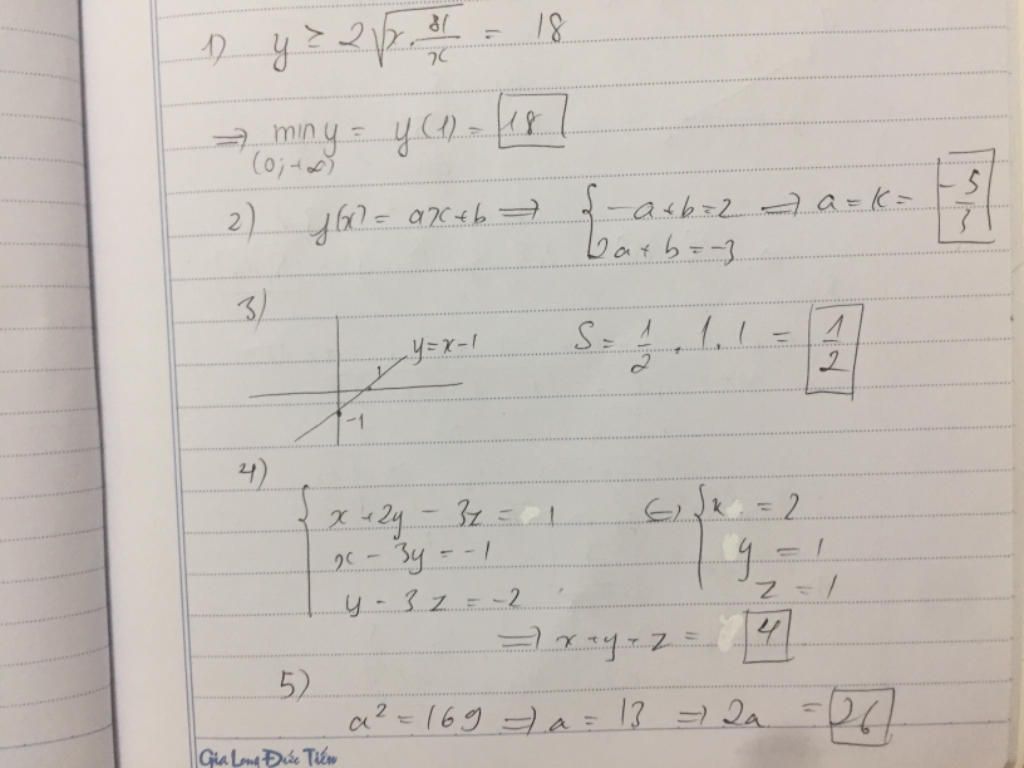 1) y ≥ 2√(x.81/x) = 18
⇒ min y = y(1) = 18
(0;+∞)
2) y(x) = ax+b ⇒ { -a+b=2 ⇒ a = k = -5/3
2a+b=-3
3)
y=x-1
1
-1
S = 1/2 . 1.1 = 1/2
4)
{ x+2y-3z = 1 ⇔ { x = 2
x-3y = -1 y = 1
y-3z = -2 z = 1
⇒ x+y+z = 4
5)
a² = 169 ⇒ a = 13 ⇒ 2a = 26
Gia Long Đức Tiến